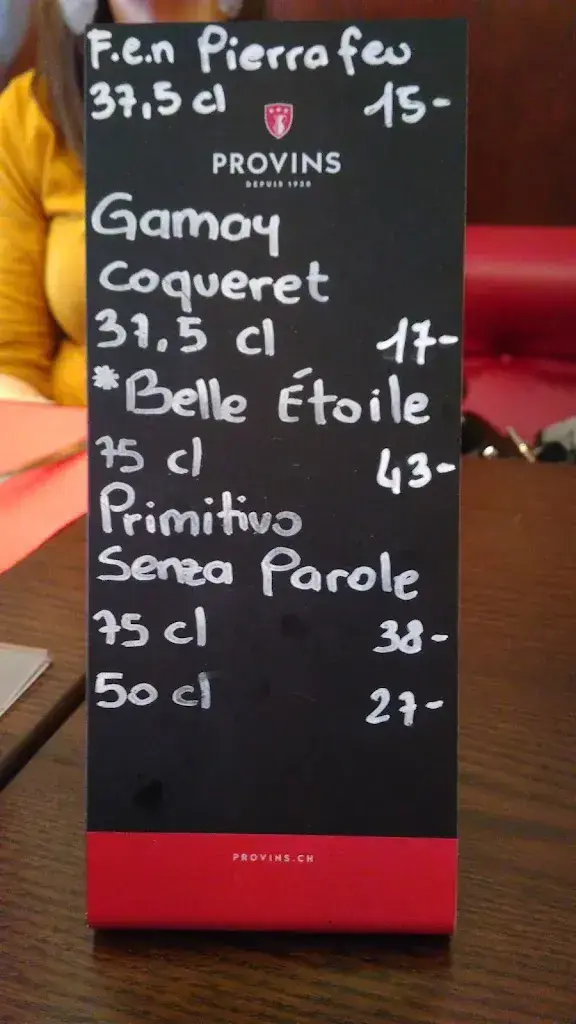 F.e.n Pierrafeu
37,5 cl 15-
PROVINS
DEPUIS 1930
Gamay
Coqueret
37,5 cl 17-
*Belle Étoile
75 cl 43-
Primitivo
Senza Parole
75 cl 38-
50 cl 27-
PROVINS.CH